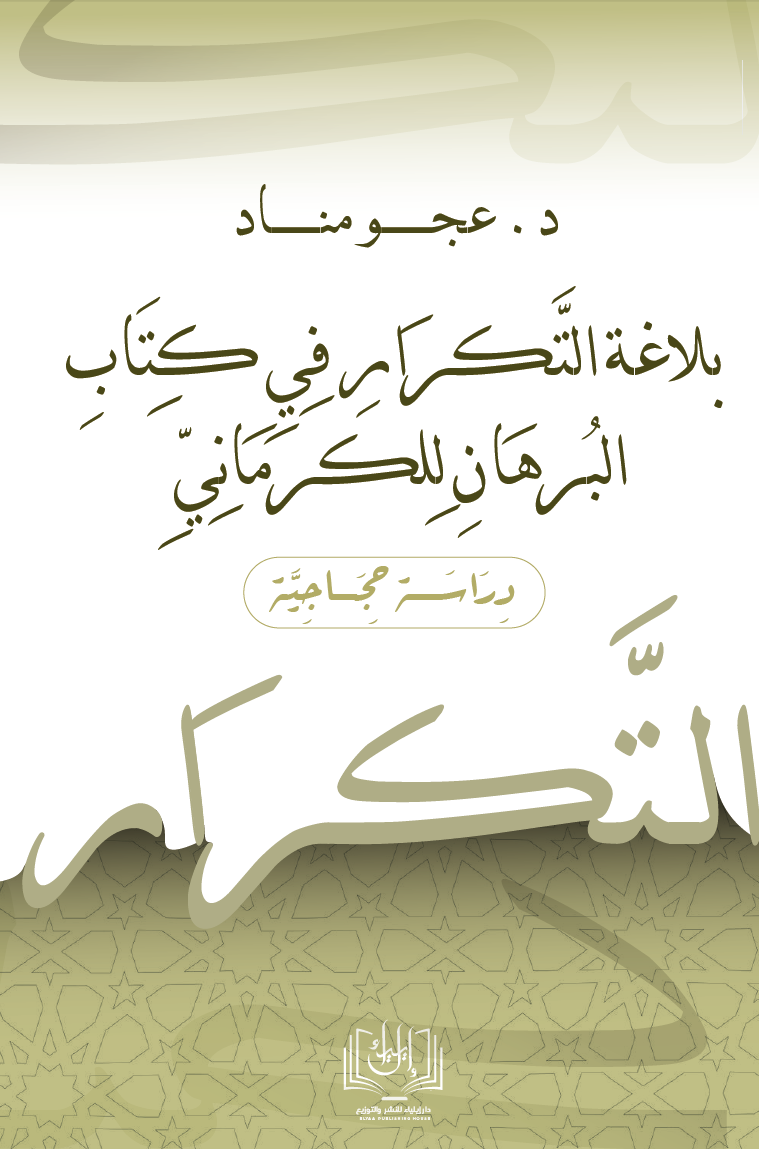 د. عجو مناد
بلاغة التَّكرَارِ فِي كِتَابِ
البُرهَانِ لِلكَرمَانِيِّ
دِرَاسَة حِجَاجِيَّة
التَّكرَار
دار إيلياء للنشر والتوزيع
ELYAA PUBLISHING HOUSE